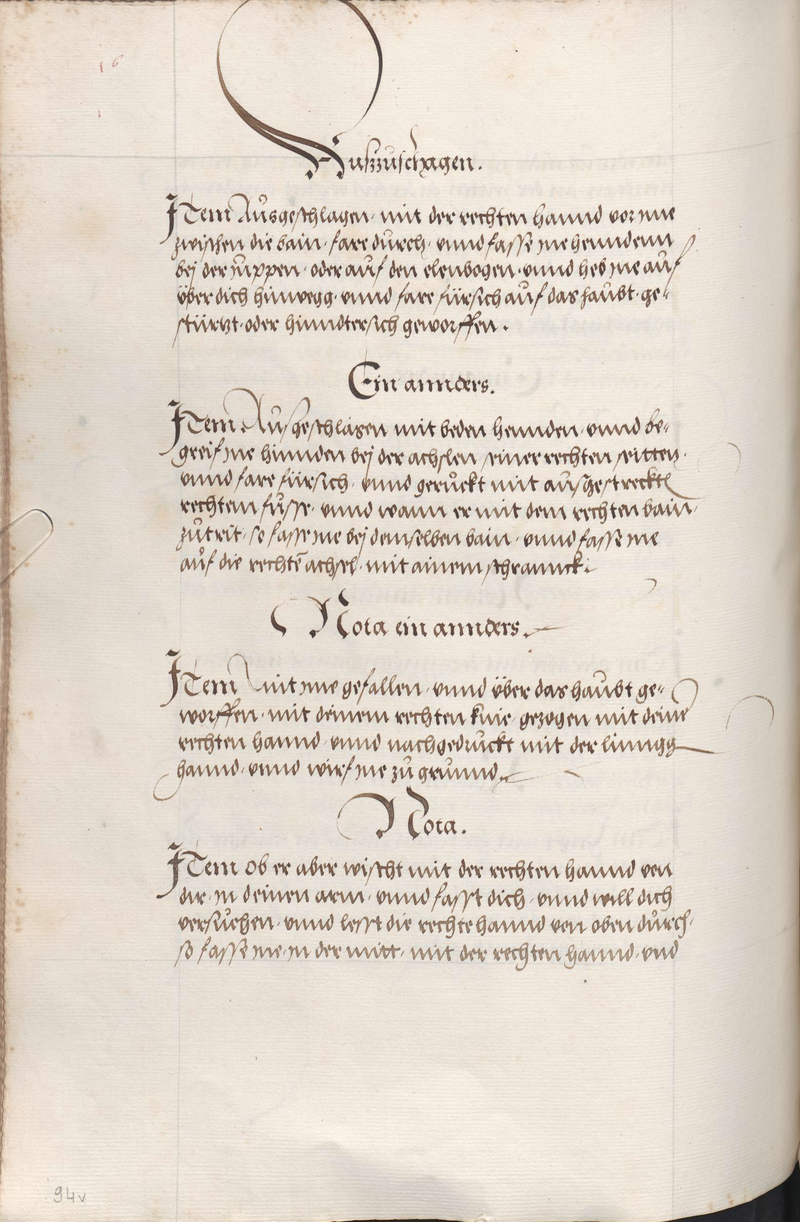 Auszuschlagen.
Item Ausgeschlagen mit der rechten hannd vor ime
zwischen die bain, fare durch, unnd fasse ine hinndenn
bej der juppen, oder auf den elenbogen, unnd heb ine auf
über dich hinwegg, unnd fare fürsich auf das haubt, ge-
stürtzt, oder hinndtersich geworffen.
Ein annders.
Item Ausgeschlagen mit beden hennden, unnd be-
greif ine hinnden bej der achslen, seiner rechten seitten,
unnd fare fürsich, unnd geruckt mit ausgestrecktē
rechtem fusse, unnd wann er mit dem rechten bain,
zutrit, so fasse ine bej demselben bain, unnd fasse ine
auf die rechtē achsel, mit ainem schrannck.
Nota ein annders.
Item mit ime gefallen, unnd über das haubt ge-
worffen, mit deinem rechten knie, gezogen mit deine
rechten hannd, unnd nachgedruckt mit der linngg
hannd, unnd wirf ine zu grunnd.
Nota.
Item Ob er aber wischt mit der rechten hannd von
dir, in deinen arm, unnd fasst dich, unnd will dich
versuchen, unnd lesst die rechte hannd von oben durch,
so fasse ine, in der mitt, mit der rechten hannd, und
94v